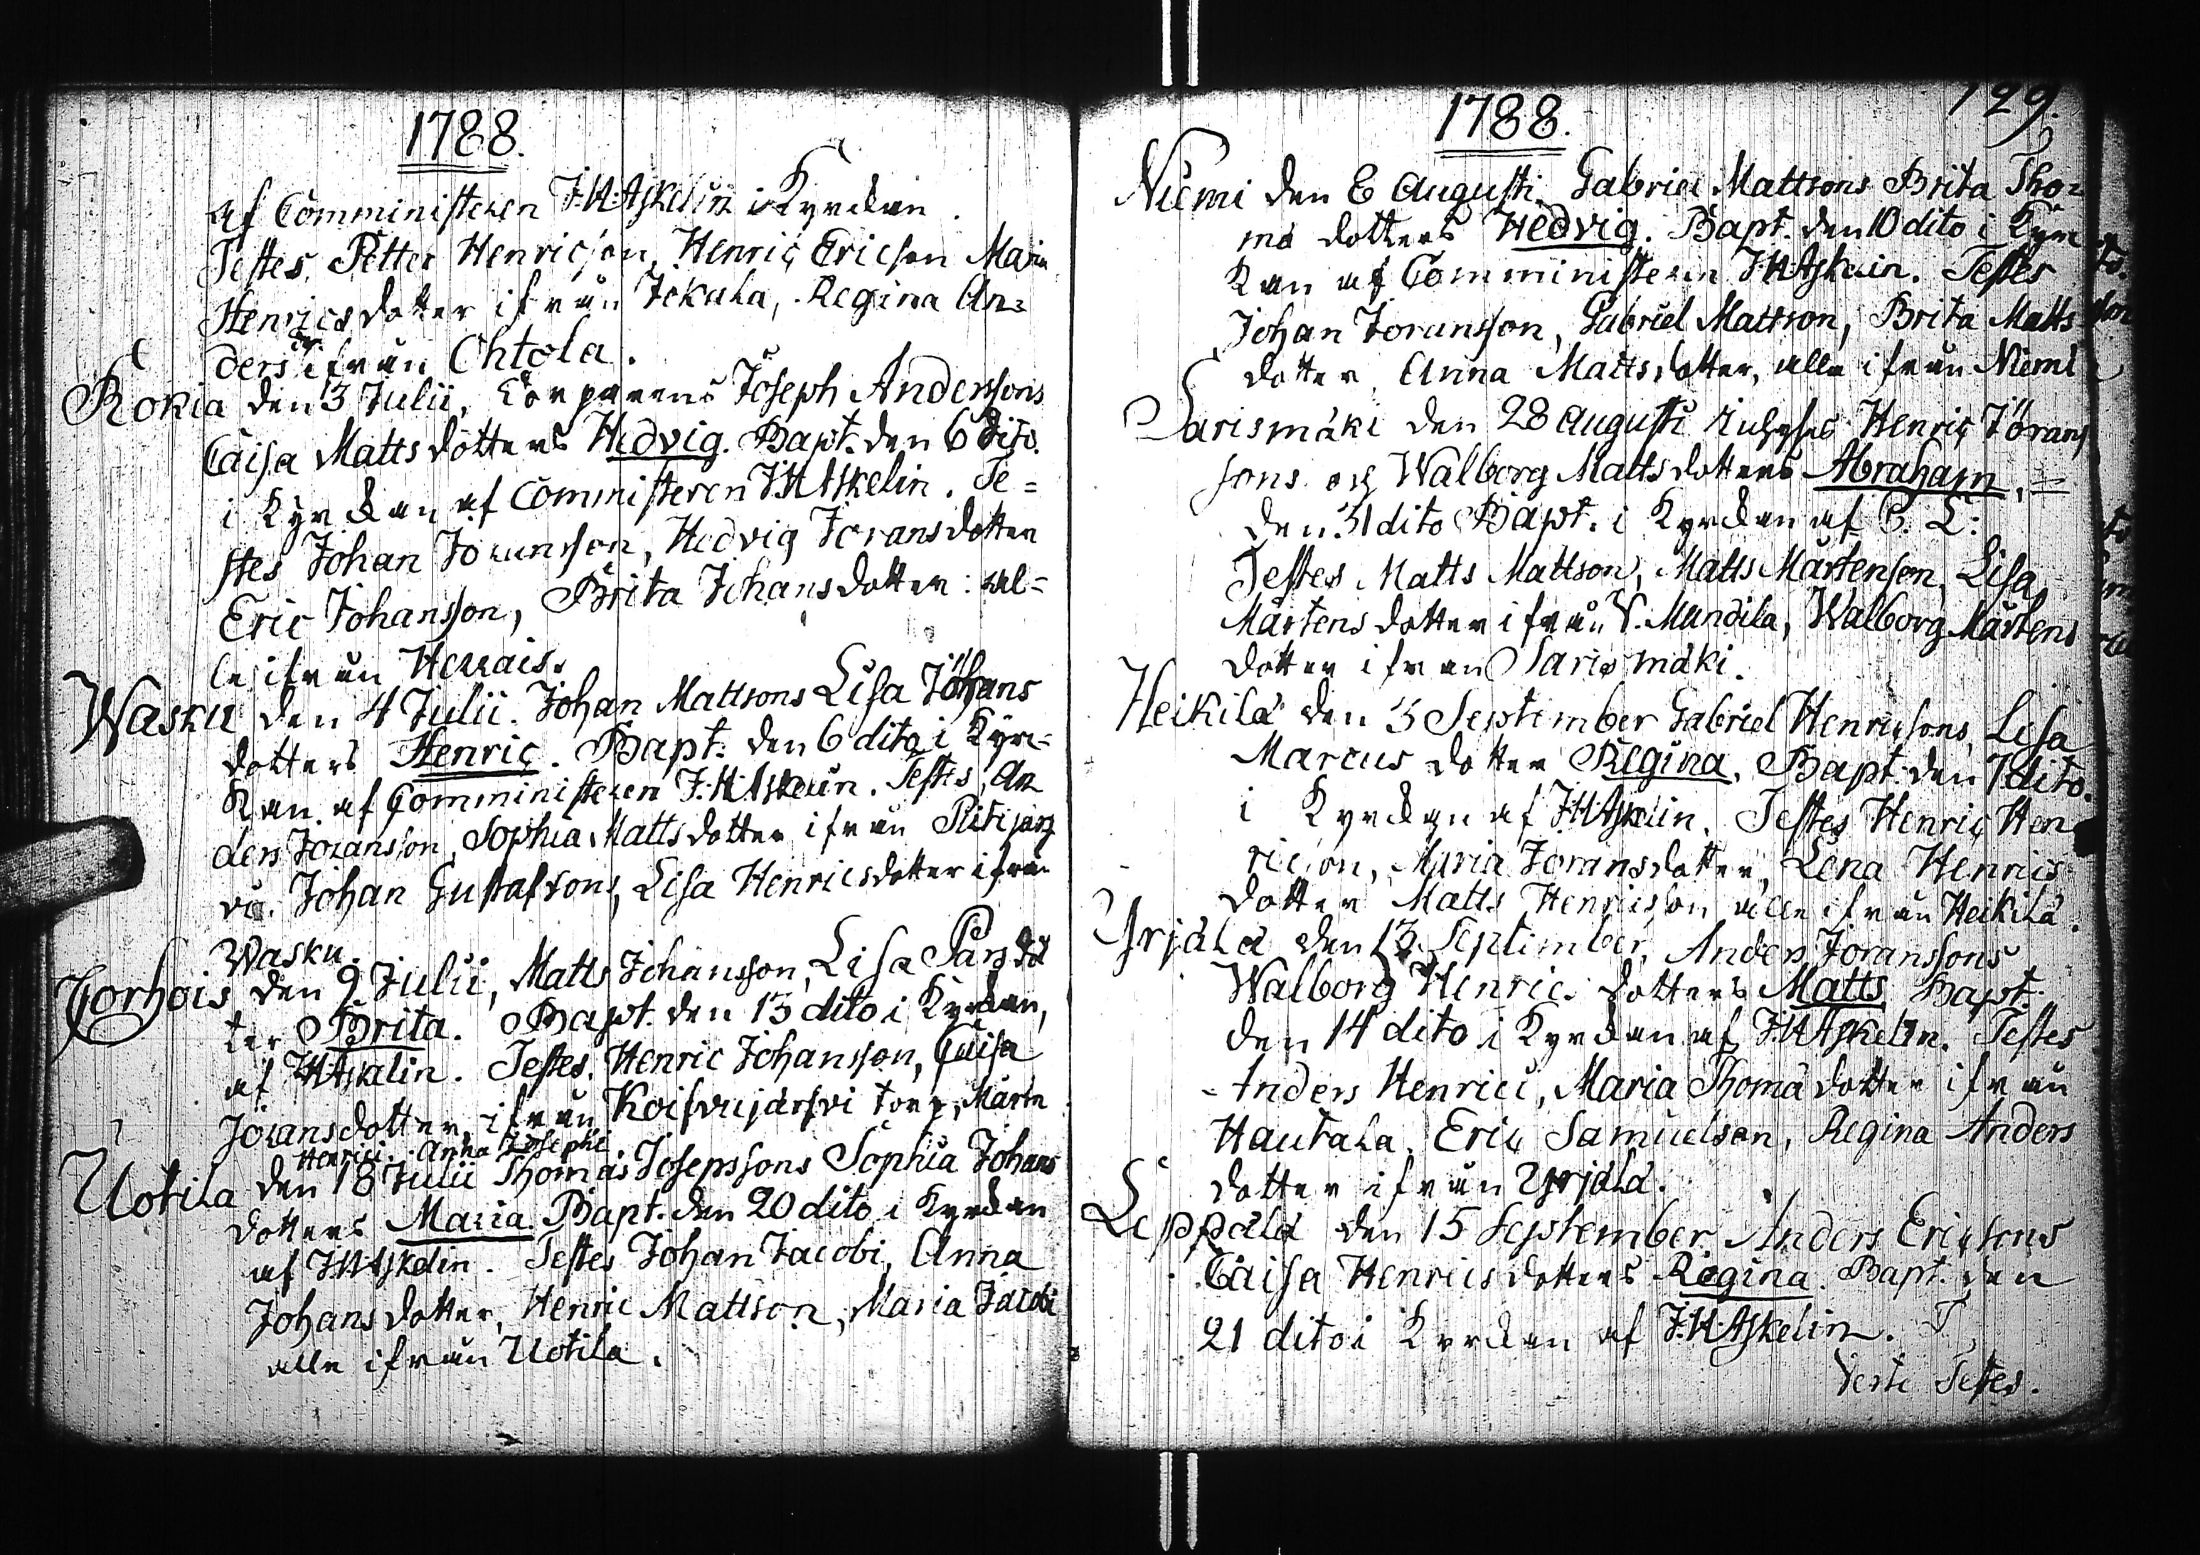 1788.
af Comministeren J:H:Askelin i Kyrckan.
Testes, Petter Henricson, Henric Ericson Maria
Henricsdotter ifrån Jokala, Regina An=
ders dr ifrån Ohtola.
Rokia den 3 Julii, Corparens Joseph Anderssons
Caisa Matts dotters Hedvig. Bapt. den 6 dito.
i Kyrckan af Comministeren JHAskelin. Te=
stes Johan Joransson, Hedvig Joransdotter
Eric Johansson, Brita Johansdotter: al=
le ifrån Herrais.
Wasku den 4 Julii. Johan Mattsons Lisa Johans
dotters Henric. Bapt: den 6 dito i Kyrc=
kan af Comministeren J:HAskelin. Testes, An
ders Joransson, Sophia Mattsdotter ifrån Pitijarj
vi. Johan Gustafsons, Lisa Henricsdotter ifrån
Wasku.
Torhois den 9 Julii, Matts Johansson, Lisa Pärs dot
ter Brita. Bapt. den 13 dito i Kyrckan,
af JHAskelin. Testes, Henric Johansson, Caisa
Joransdotter, ifrån Koifvujärfvi torp, Mårten
Henrici. Anna Josephi
Uotila den 18 Julii Thomas Josepssons Sophia Johans
dotters Maria. Bapt. den 20 dito i Kyrckan
af JHAskelin. Testes Johan Jacobi, Anna
Johansdotter, Henric Mattson, Maria Jacobi
alle ifrån Uotila.
129.
1788.
Niemi den 6 Augusti. Gabriel Mattsons Brita Tho=
mä dotters Hedvig. Bapt. den 10 dito i Kyrc
kan af Comministern JHAskelin. Testes
Johan Joransson, Gabriel Mattson, Brita Matts
dotter, Anna Mattsdotter, alle ifrån Niemi
Sarismäki den 28 Augusti Henric Jörans
sons och Walborg Mattsdotters Abraham.
den 31 dito Bapt. i Kyrckan af C. L:
Testes Matts Mattson, Matts Mårtenson, Lisa
Mårtensdotter ifrån V. Mundila, Walborg Mårtens
dotter ifrån Sarismäki.
Heikilä den 5 September Gabriel Henricsons, Lisa
Marcus dotter Regina. Bapt. den 7 dito.
i Kyrckan af JHAskelin. Testes Henric Hen
ricson, Maria Joransdotter, Lena Henrics
dotter Matts Henricsson alle ifrån Heikilä.
Yrjälä den 13 September, Anders Joranssons
Walborg Henrics dotters Matts Bapt.
den 14 dito i Kyrckan af JHAskelin. Testes
Anders Henrici, Maria Thomä dotter ifrån
Hautala. Eric Samuelson, Regina Anders
dotter ifrån Yrjälä.
Leppälä den 15 September Anders Ericsons
Caisa Henricsdotters Regina. Bapt. den
21 dito i Kyrckan af J:HAskelin. T
Verte Testes.